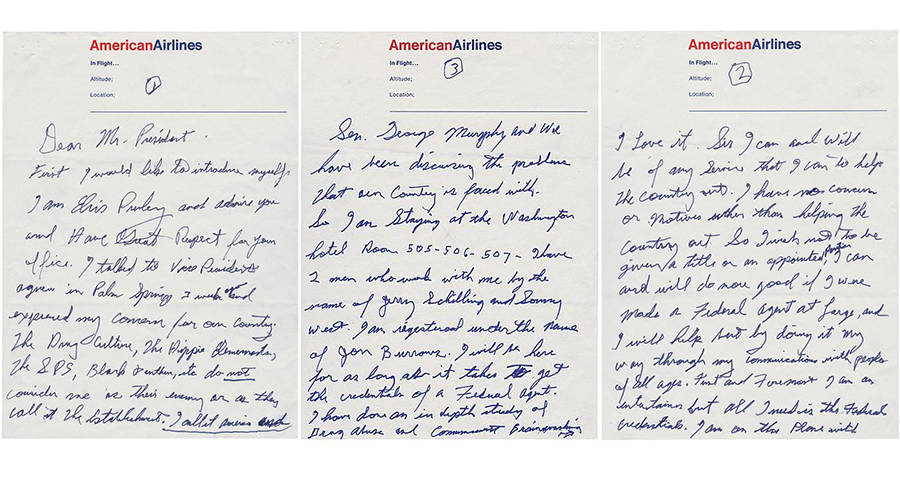 AmericanAirlines
In Flight...
Altitude;
Location;
1
Dear Mr. President.
First I would like to introduce myself.
I am Elvis Presley and admire you
and Have Great Respect for your
office. I talked to Vice President
agnew in Palm Springs 3 weeks and
expressed my concern for our country.
The Drug Culture, The Hippie Elements,
The SDS, Black Panthers, etc do not
consider me as their enemy or as they
call it the Establishment. I call it america and
AmericanAirlines
In Flight...
Altitude;
Location;
3
Sen. George Murphy and We
have been discussing the problems
that our Country is faced with.
So I am Staying at the Washington
hotel Room 505-506-507- I have
2 men who work with me by the
name of Jerry Schilling and Sonny
West. I am registered under the name
of Jon Burrows. I will be here
for as long as it takes to get
the credentials of a Federal agent.
I have done an in depth study of
Drug Abuse and Communist Brainwashing
AmericanAirlines
In Flight...
Altitude;
Location;
2
I Love it. Sir I can and will
be of any Service that I can to help
the country out. I have no concerns
or motives other than helping the
country out. So I wish not to be
given a title or an appointed position, I can
and will do more good if I were
made a Federal Agent at Large, and
I will help but by doing it my
way through my communications with people
of all ages. First and Foremost I am an
entertainer but all I need is the Federal
credentials. I am on the Plane with